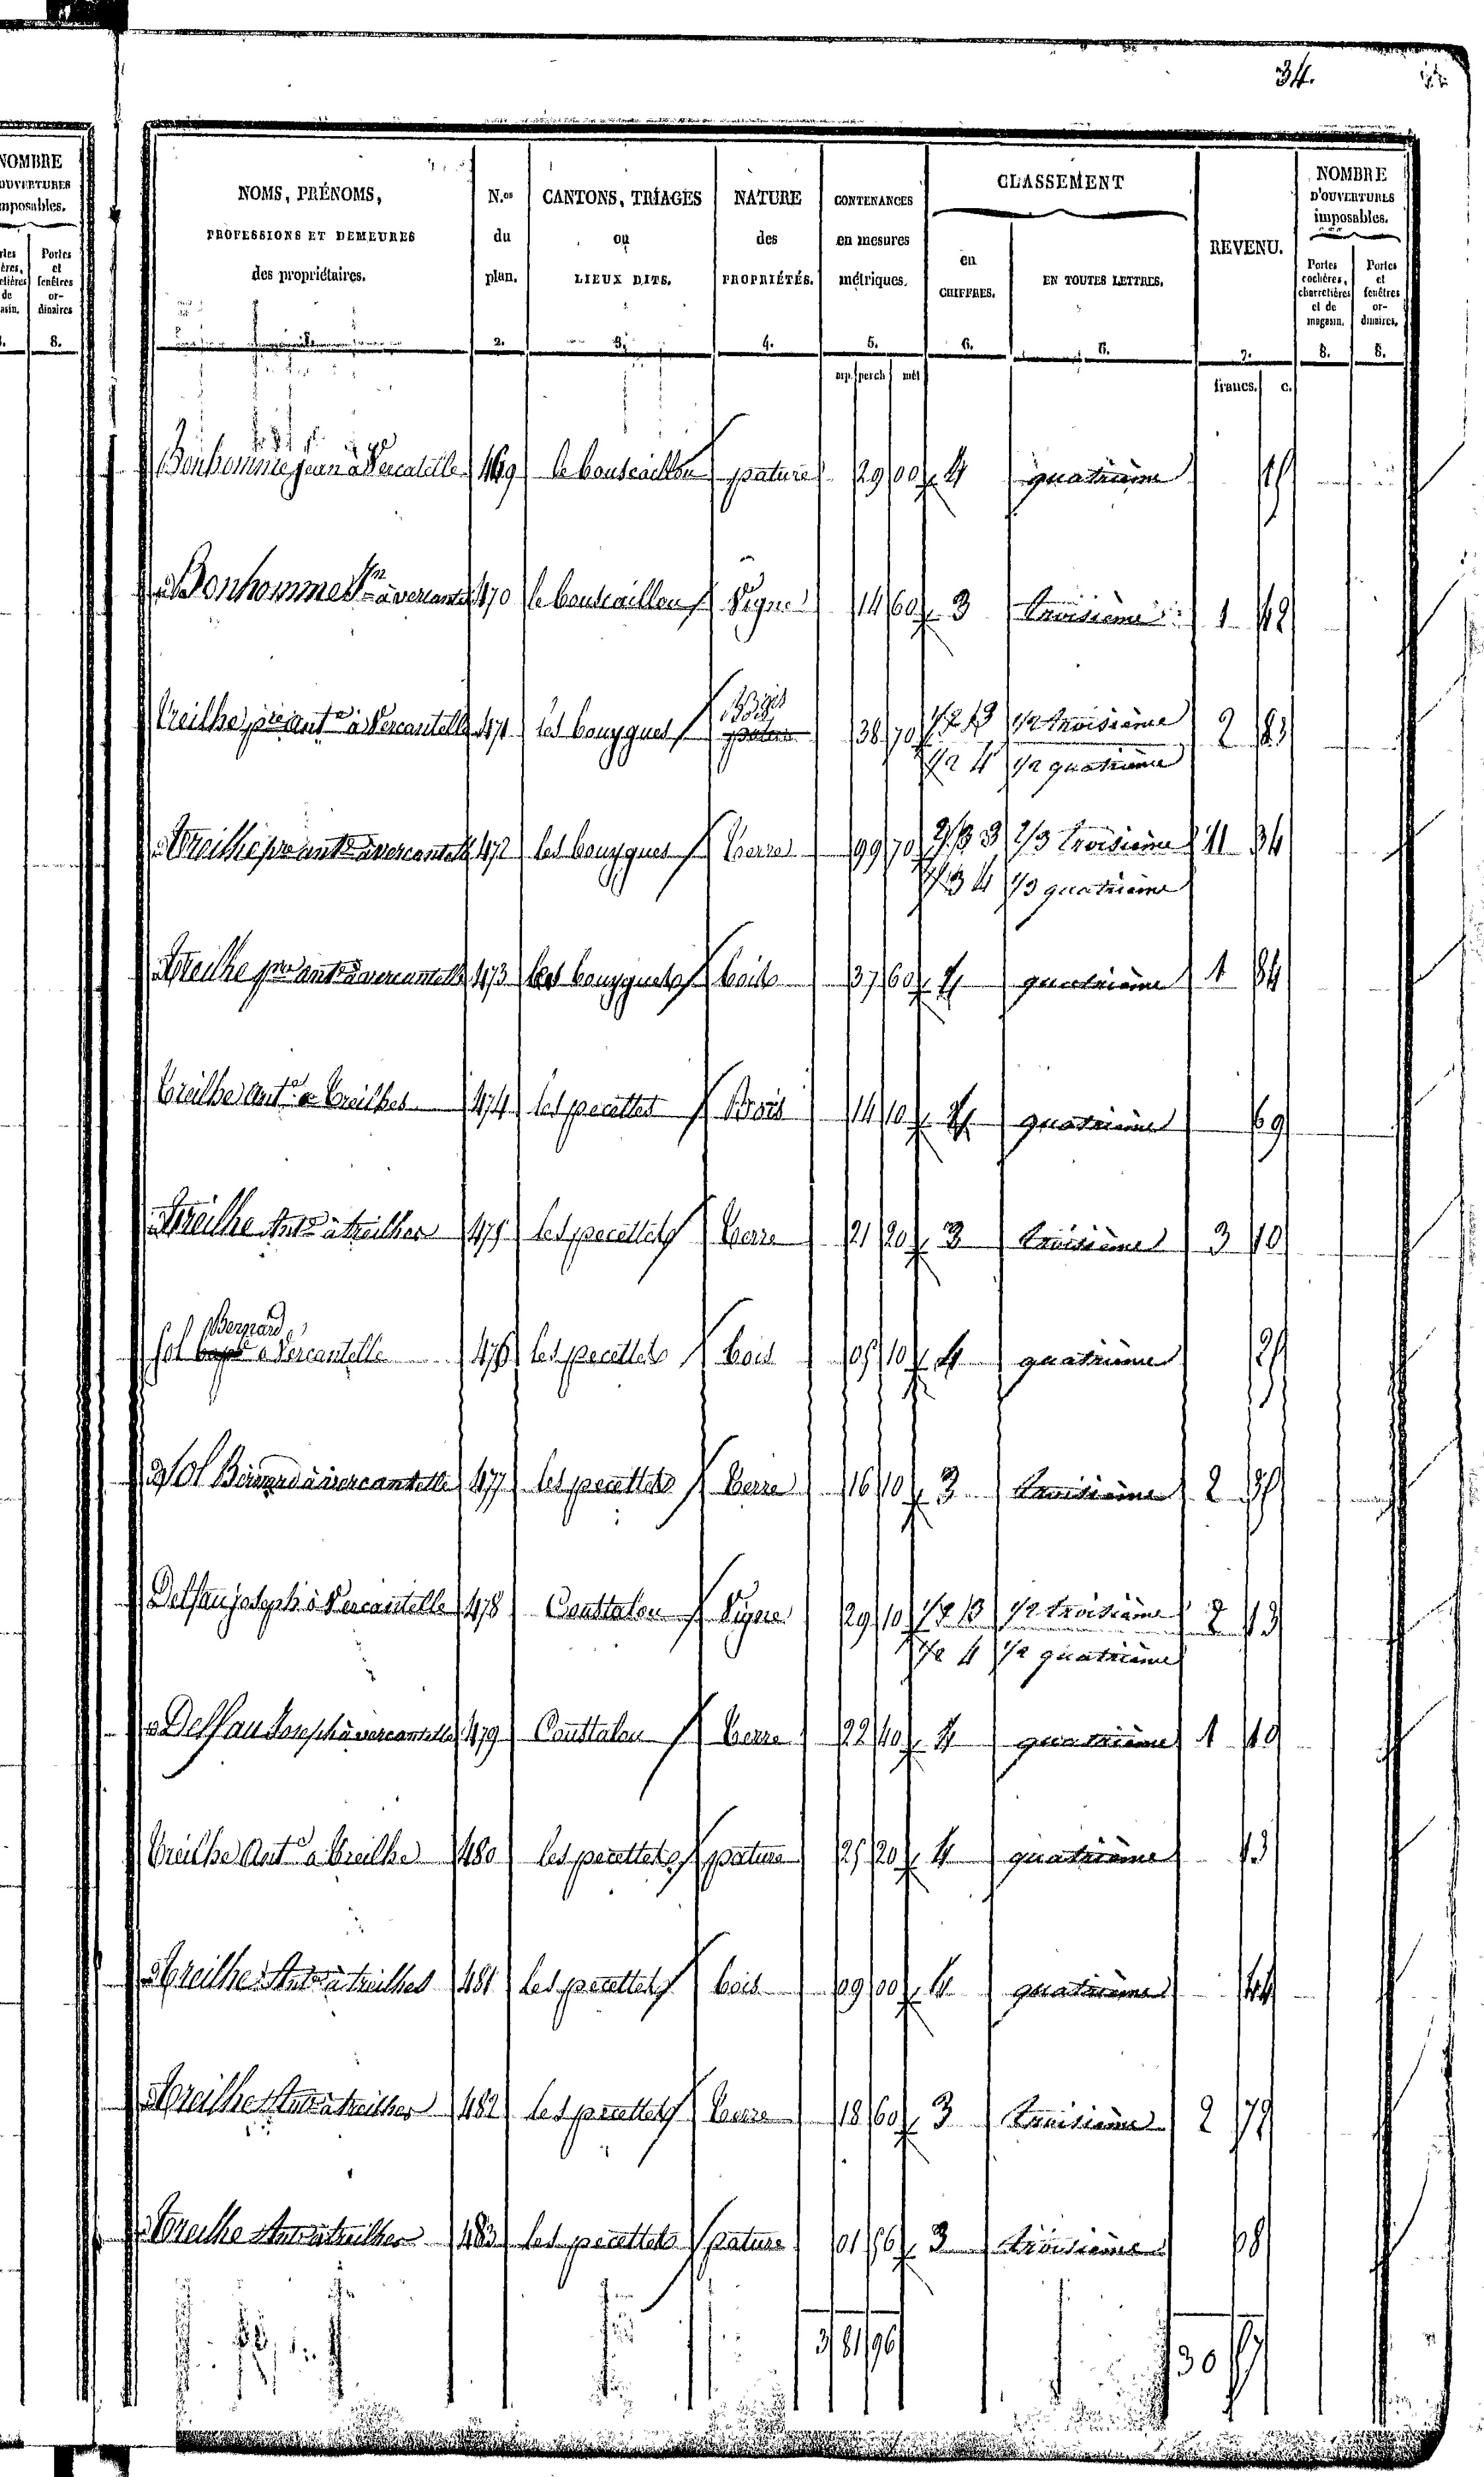 34.
NOMBRE
OUVERTURES
mposables.
Portes
et
fenêtres
or-
dinaires
8.
NOMS, PRÉNOMS,
PROFESSIONS ET DEMEURES
des propriétaires.
N.os
du
plan.
2.
CANTONS, TRIAGES
ou
LIEUX DITS.
3.
NATURE
des
PROPRIÉTÉS.
4.
CONTENANCES
en mesures
métriques.
5.
CLASSEMENT
en
CHIFFRES.
6.
EN TOUTES LETTRES.
6.
REVENU.
7.
NOMBRE
D'OUVERTURES
imposables.
Portes
cochères,
charretières
et de
magasin.
8.
Portes
et
fenêtres
or-
dinaires.
8.
arp. perch mèt
francs. c.
Bonhomme jean à Vercantelle 469 le bouscaillou pature 29 00 4 quatrième
Bonhomme à vercantel 470 le bouscaillou Vigne 14 60 3 troisième 1
Bois
Treilhe ant.e à Vercantelle 471 les bouygues pature 38 70 1/2 3 1/2 troisième 2 83
1/2 4 1/2 quatrième
Treilhe ant.e à vercantelle 472 les bouygues terre 99 70 2/3 3 2/3 troisième 11 34
1/3 4 1/3 quatrième
Treilhe ant.e à vercantelle 473 les bouygues bois 37 60 4 quatrième 1 84
Treilhe Ant.e a Treilhes 474 les pecettes Bois 14 10 4 quatrième 69
Treilhe Ant.e à treilhes 475 les pecettes terre 21 20 3 troisième 3 10
Bernard
Sol a Vercantelle 476 les pecettes bois 05 10 4 quatrième 25
Sol Bernard à vercantelle 477 les pecettes terre 16 10 3 troisième 2 35
Delfau joseph à Vercantelle 478 Coustalou Vigne 29 10 1/2 3 1/2 troisième 2 13
1/2 4 1/2 quatrième
Delfau Joseph à vercantelle 479 Coustalou terre 22 40 4 quatrième 1 10
Treilhe Ant.e a Treilhe 480 les pecettes pature 25 20 4 quatrième 13
Treilhe Ant.e à treilhes 481 les pecettes bois 09 00 4 quatrième 44
Treilhe Ant.e à treilhes 482 les pecettes terre 18 60 3 troisième 2 72
Treilhe Ant.e à treilhes 483 les pecettes pature 01 56 3 troisième 08
3 81 96 30